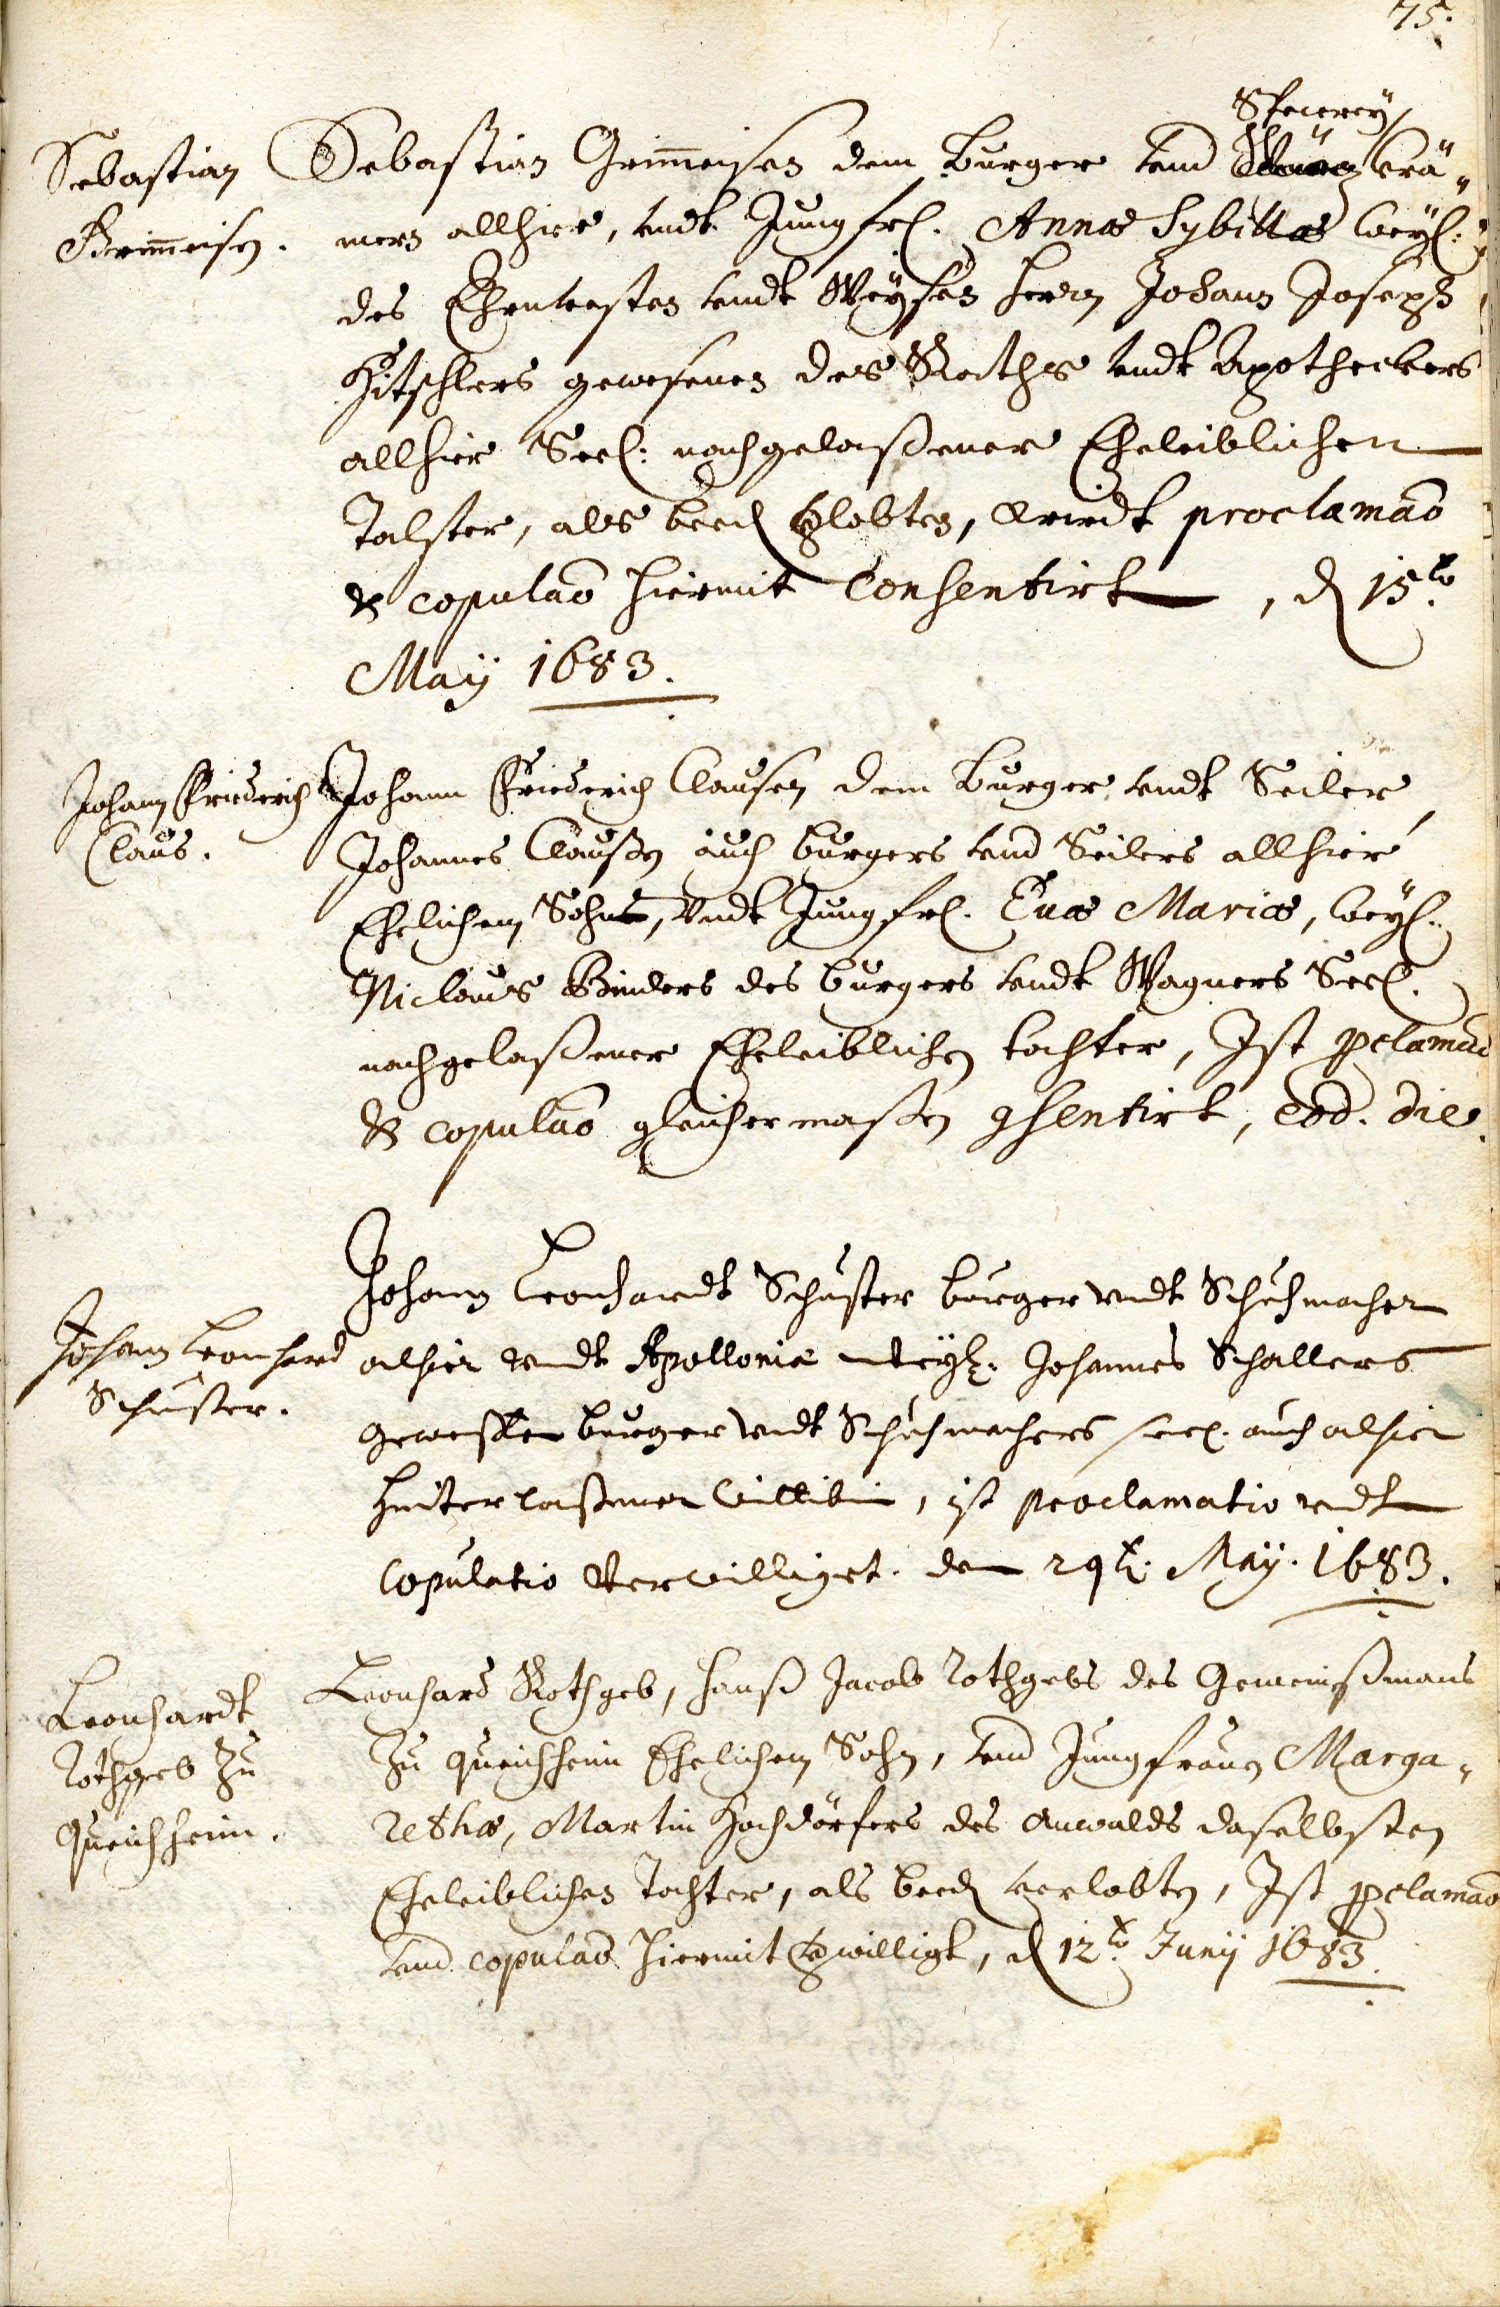 75.
Sebastian
Grim̄eisen.
Specerey
Sebastian Grim̄eisen dem Burger und Crä„
mern allhier, undt Jungfrl. Annæ Sybillæ Weyl:
des Ehrnvesten undt Weysen herrn Johann Joseph
Hitschlers gewesenen des Raths undt Apotheckers
allhier Seel: nachgelaßener Eheleiblichen
Tochter, als beed Vlobten, Wirdt proclamāo
& copulāo hiermit Consentirt, d 15to
May 1683.
Johann Friederich
Claus.
Johann Friederich Clausen dem Burger undt Seiler,
Johannes Claußen auch burgers und Seilers allhier
Ehelichem Sohne, Undt Jungfrl. Evæ Mariæ, Weyl:
Niclaus Binders des burgers undt Wagners Seel.
nachgelaßener Eheleiblichen tochter, Ist pclamāo
& copulāo gleichermaßen 9sentirt, eod. die.
Johann Leonhard
Schuster.
Johann Leonhardt Schuster burger undt Schuhmacher
alhier undt Apollonia weyl. Johannes Schallers
gewesten burger undt Schuhmachers seel. auch alhier
hinterlaßener Wittibin, ist proclamatio undt
Copulatio Verwilliget. den 29t. May. 1683.
Leonhardt
Rothgeb zu
Queichheim.
Leonhard Rothgeb, Hanß Jacob Rothgebs des Gemeinßmans
zu Queichheim Ehelichem Sohn, und Jungfrauen Marga„
rethæ, Martin Hochdörfers des Anwalds daselbsten
Eheleiblichen Tochter, als beed verlobten, Ist pclamāo
und copulāo hiermit Vwilligt, d 12to Junij 1683.